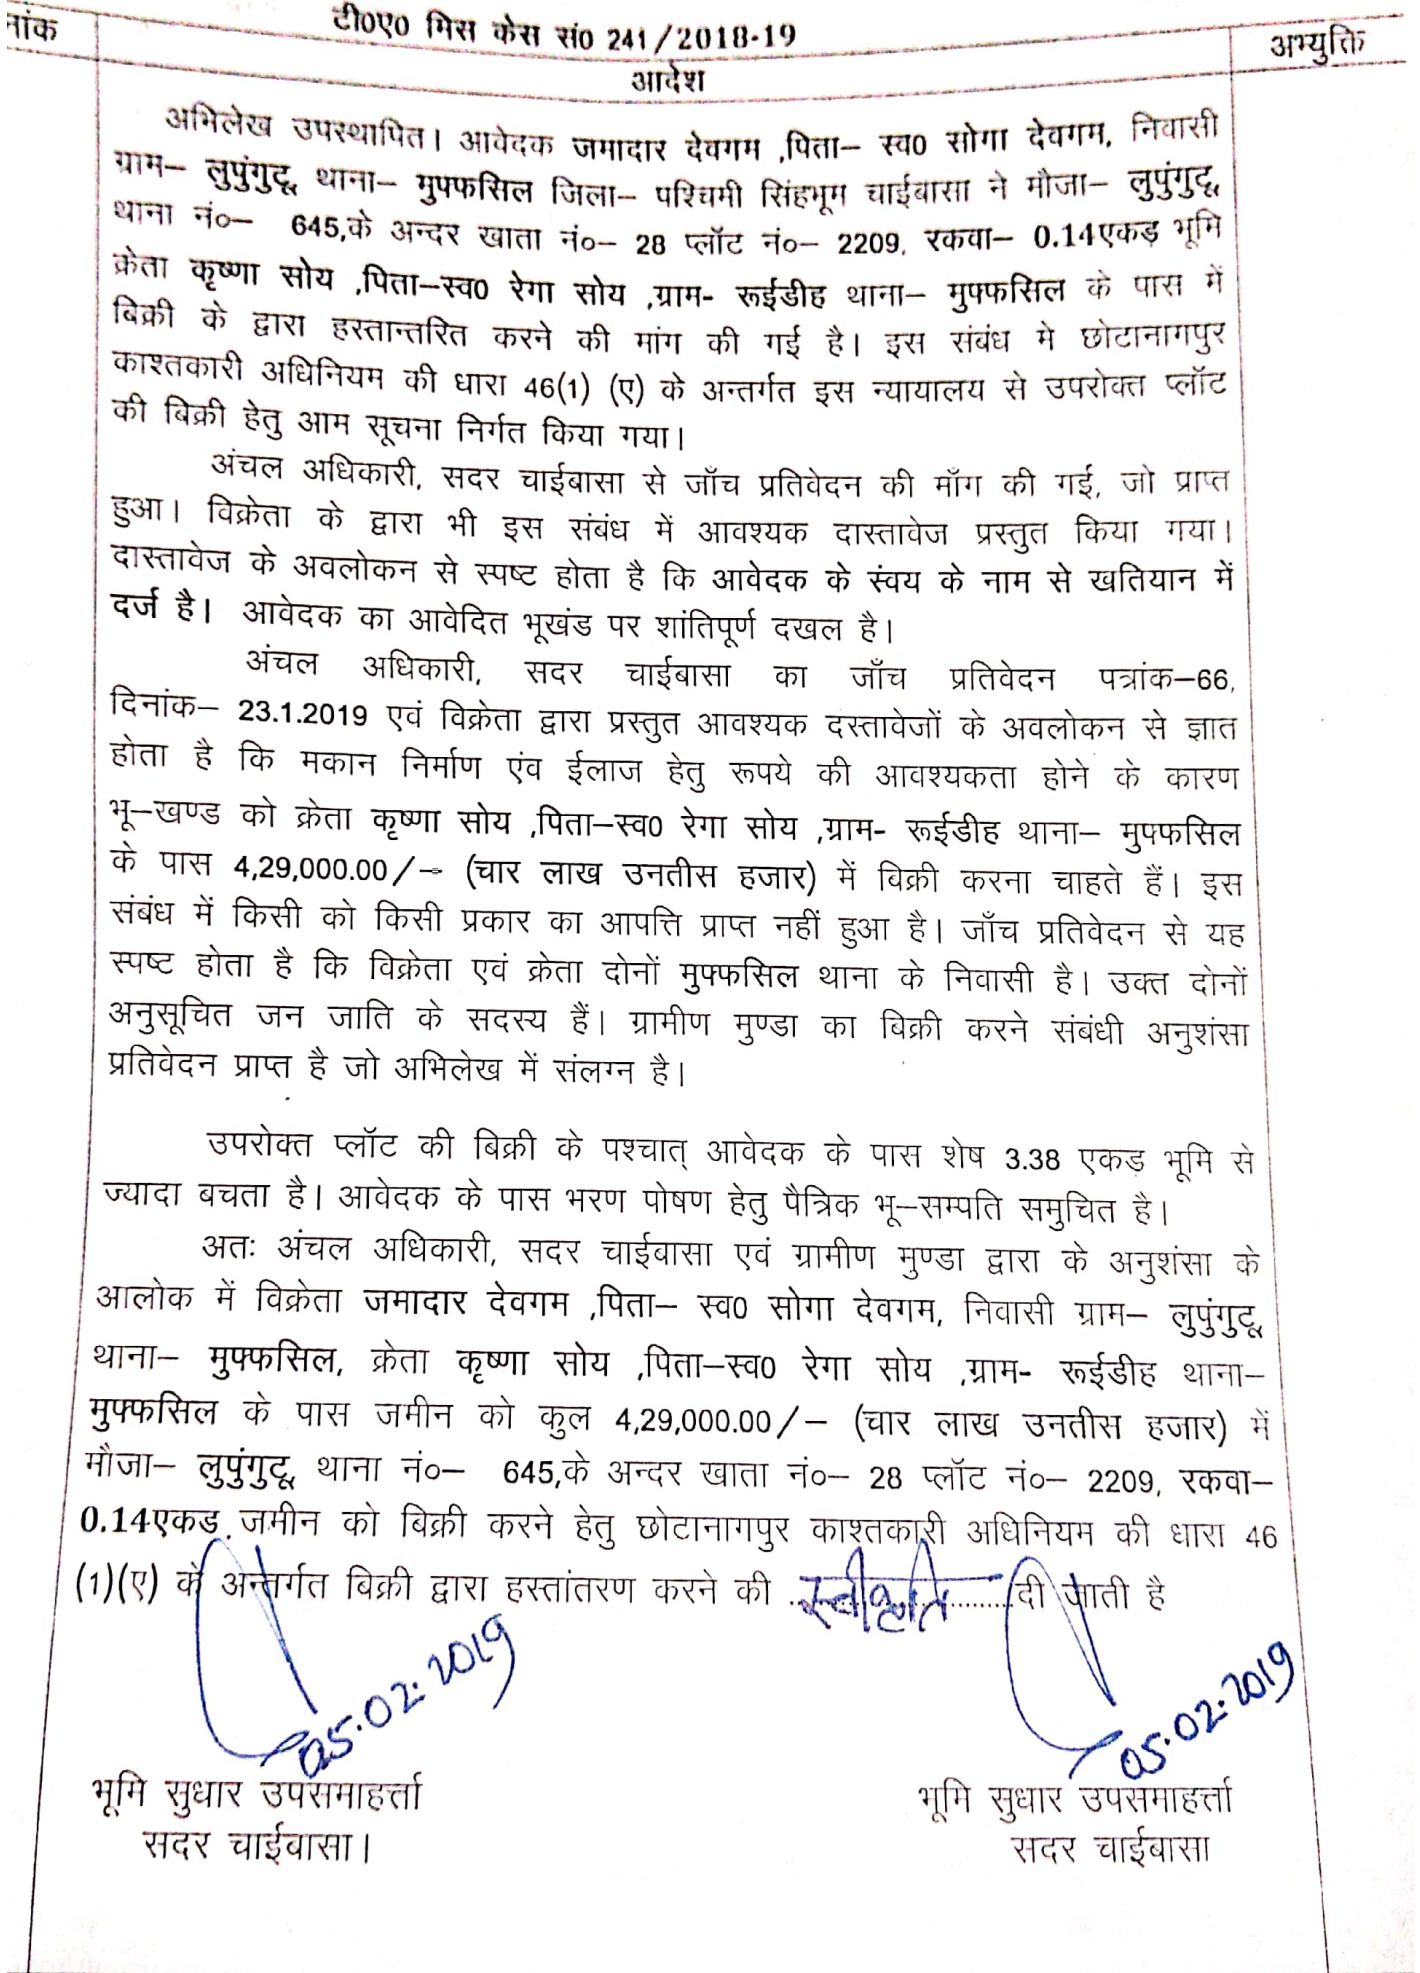 नांक
टी0ए0 मिस केस सं0 241/2018-19
अभ्युक्ति
आदेश
अभिलेख उपस्थापित। आवेदक जमादार देवगम ,पिता– स्व0 सोगा देवगम, निवासी
ग्राम– लुपुंगुटू, थाना– मुफ्फसिल जिला– पश्चिमी सिंहभूम चाईबासा ने मौजा– लुपुंगुटू,
थाना नं०– 645,के अन्दर खाता नं०– 28 प्लॉट नं०– 2209, रकवा– 0.14एकड़ भूमि
क्रेता कृष्णा सोय ,पिता–स्व0 रेगा सोय ,ग्राम- रूईडीह थाना– मुफ्फसिल के पास में
बिक्री के द्वारा हस्तान्तरित करने की मांग की गई है। इस संबंध मे छोटानागपुर
काश्तकारी अधिनियम की धारा 46(1) (ए) के अन्तर्गत इस न्यायालय से उपरोक्त प्लॉट
की बिक्री हेतु आम सूचना निर्गत किया गया।
अंचल अधिकारी, सदर चाईबासा से जाँच प्रतिवेदन की माँग की गई, जो प्राप्त
हुआ। विक्रेता के द्वारा भी इस संबंध में आवश्यक दास्तावेज प्रस्तुत किया गया।
दास्तावेज के अवलोकन से स्पष्ट होता है कि आवेदक के स्ंवय के नाम से खतियान में
दर्ज है। आवेदक का आवेदित भूखंड पर शांतिपूर्ण दखल है।
अंचल अधिकारी, सदर चाईबासा का जाँच प्रतिवेदन पत्रांक–66,
दिनांक– 23.1.2019 एवं विक्रेता द्वारा प्रस्तुत आवश्यक दस्तावेजों के अवलोकन से ज्ञात
होता है कि मकान निर्माण एंव ईलाज हेतु रूपये की आवश्यकता होने के कारण
भू–खण्ड को क्रेता कृष्णा सोय ,पिता–स्व0 रेगा सोय ,ग्राम- रूईडीह थाना– मुफ्फसिल
के पास 4,29,000.00/– (चार लाख उनतीस हजार) में बिक्री करना चाहते हैं। इस
संबंध में किसी को किसी प्रकार का आपत्ति प्राप्त नहीं हुआ है। जाँच प्रतिवेदन से यह
स्पष्ट होता है कि विक्रेता एवं क्रेता दोनों मुफ्फसिल थाना के निवासी है। उक्त दोनों
अनुसूचित जन जाति के सदस्य हैं। ग्रामीण मुण्डा का बिक्री करने संबंधी अनुशंसा
प्रतिवेदन प्राप्त है जो अभिलेख में संलग्न है।
उपरोक्त प्लॉट की बिक्री के पश्चात् आवेदक के पास शेष 3.38 एकड़ भूमि से
ज्यादा बचता है। आवेदक के पास भरण पोषण हेतु पैत्रिक भू–सम्पति समुचित है।
अतः अंचल अधिकारी, सदर चाईबासा एवं ग्रामीण मुण्डा द्वारा के अनुशंसा के
आलोक में विक्रेता जमादार देवगम ,पिता– स्व0 सोगा देवगम, निवासी ग्राम– लुपुंगुटू,
थाना– मुफ्फसिल, क्रेता कृष्णा सोय ,पिता–स्व0 रेगा सोय ,ग्राम- रूईडीह थाना–
मुफ्फसिल के पास जमीन को कुल 4,29,000.00/– (चार लाख उनतीस हजार) में
मौजा– लुपुंगुटू, थाना नं०– 645,के अन्दर खाता नं०– 28 प्लॉट नं०– 2209, रकवा–
0.14एकड़ जमीन को बिक्री करने हेतु छोटानागपुर काश्तकारी अधिनियम की धारा 46
(1)(ए) के अन्तर्गत बिक्री द्वारा हस्तांतरण करने की ..स्वीकृति........दी जाती है
05.02.2019 05.02.2019
भूमि सुधार उपसमाहर्त्ता भूमि सुधार उपसमाहर्त्ता
सदर चाईबासा। सदर चाईबासा